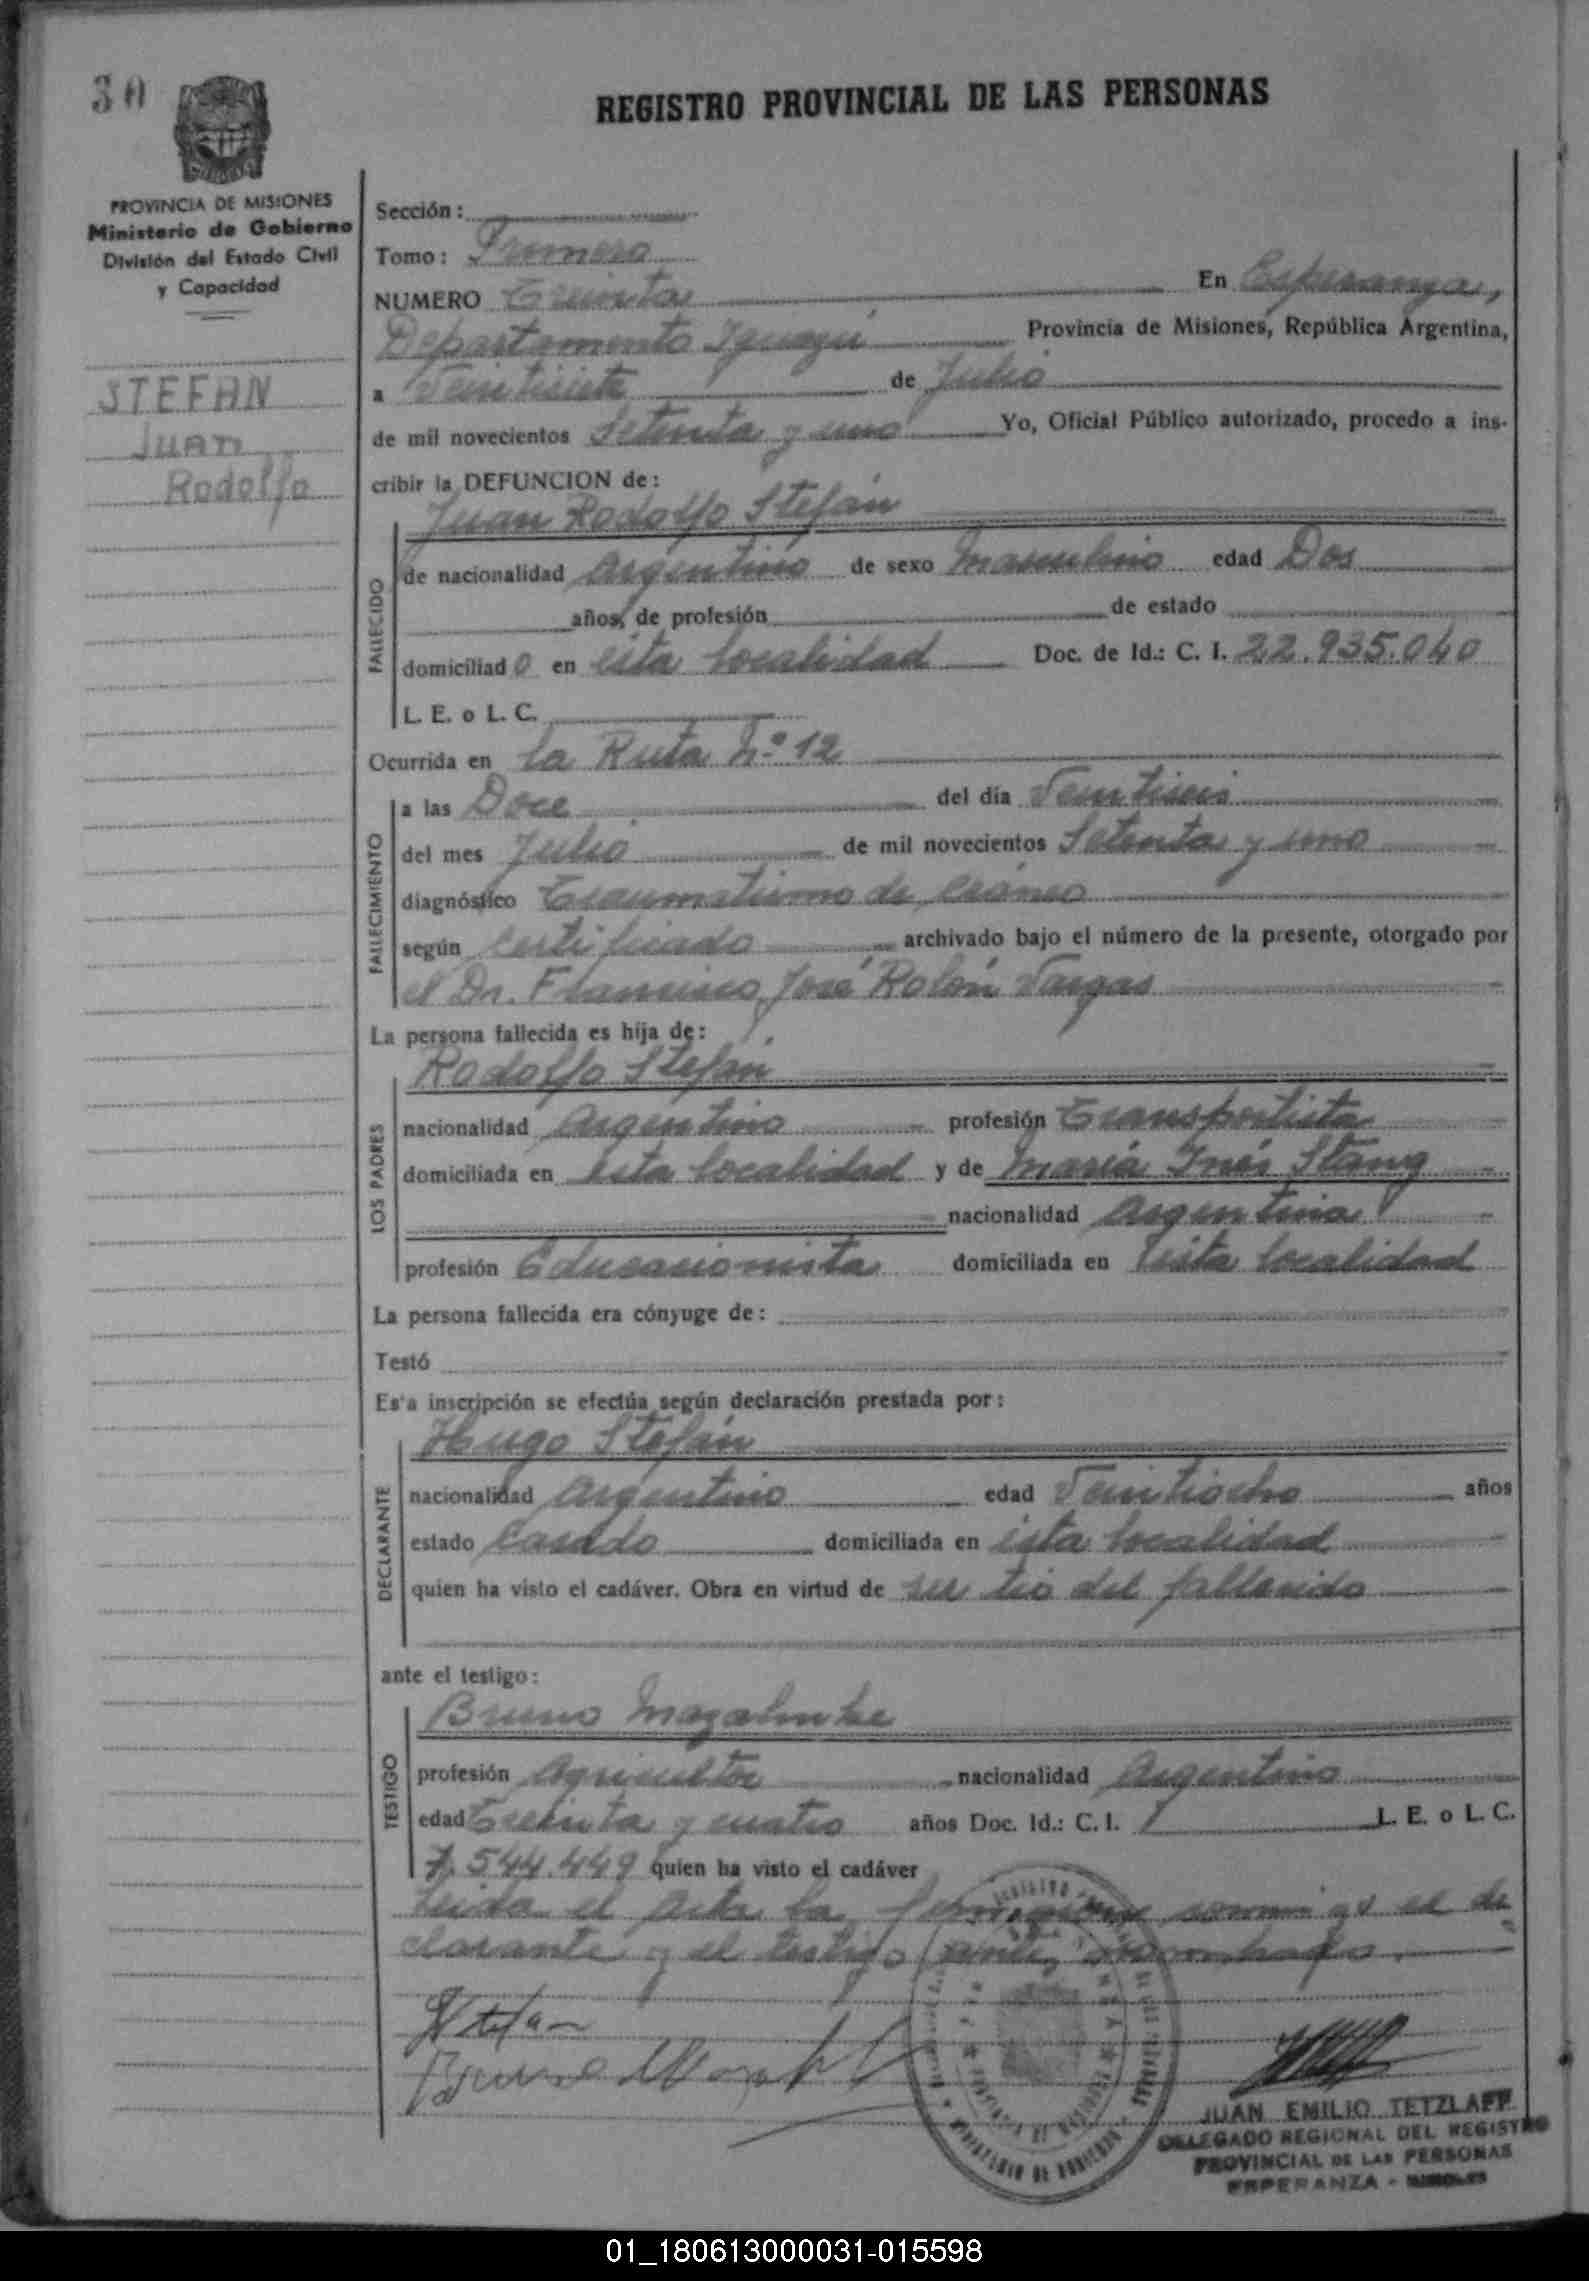 30
REGISTRO PROVINCIAL DE LAS PERSONAS
PROVINCIA DE MISIONES
Ministerio de Gobierno
División del Estado Civil
y Capacidad
STEFAN
Juan
Rodolfo
Sección:
Tomo: Primero
NUMERO Treinta En Esperanza,
Departamento Iguazú Provincia de Misiones, República Argentina,
a Veintisiete de Julio
de mil novecientos Setenta y uno Yo, Oficial Público autorizado, procedo a ins-
cribir la DEFUNCION de:
Juan Rodolfo Stefan
FALLECIDO
de nacionalidad Argentino de sexo Masculino edad Dos
años, de profesión de estado
domiciliado en ésta localidad Doc. de Id.: C. I. 22.935.040
L. E. o L. C.
Ocurrida en la Ruta Nº 12
FALLECIMIENTO
a las Doce del día Veintiseis
del mes Julio de mil novecientos Setenta y uno
diagnóstico Traumatismo de cráneo
según certificado archivado bajo el número de la presente, otorgado por
el Dr. Francisco José Rolón Vargas
La persona fallecida es hija de:
Rodolfo Stefan
LOS PADRES
nacionalidad Argentino profesión Transportista
domiciliada en ésta localidad y de María Inés Stang
nacionalidad Argentina
profesión Educacionista domiciliada en ésta localidad
La persona fallecida era cónyuge de:
Testó
Esta inscripción se efectúa según declaración prestada por:
Hugo Stefan
DECLARANTE
nacionalidad Argentino edad Veintiocho años
estado Casado domiciliada en ésta localidad
quien ha visto el cadáver. Obra en virtud de ser tio del fallecido
ante el testigo:
Bruno
TESTIGO
profesión Agricultor nacionalidad Argentino
edad Treinta y cuatro años Doc. Id.: C. I. L. E. o L. C.
7.544.449 quien ha visto el cadáver
Leida el acta la firman conmigo el de
clarante y el testigo antes nombrado.
Stefan
Bruno
JUAN EMILIO TETZLAFF
DELEGADO REGIONAL DEL REGISTRO
PROVINCIAL DE LAS PERSONAS
ESPERANZA - MISIONES
01_180613000031-015598